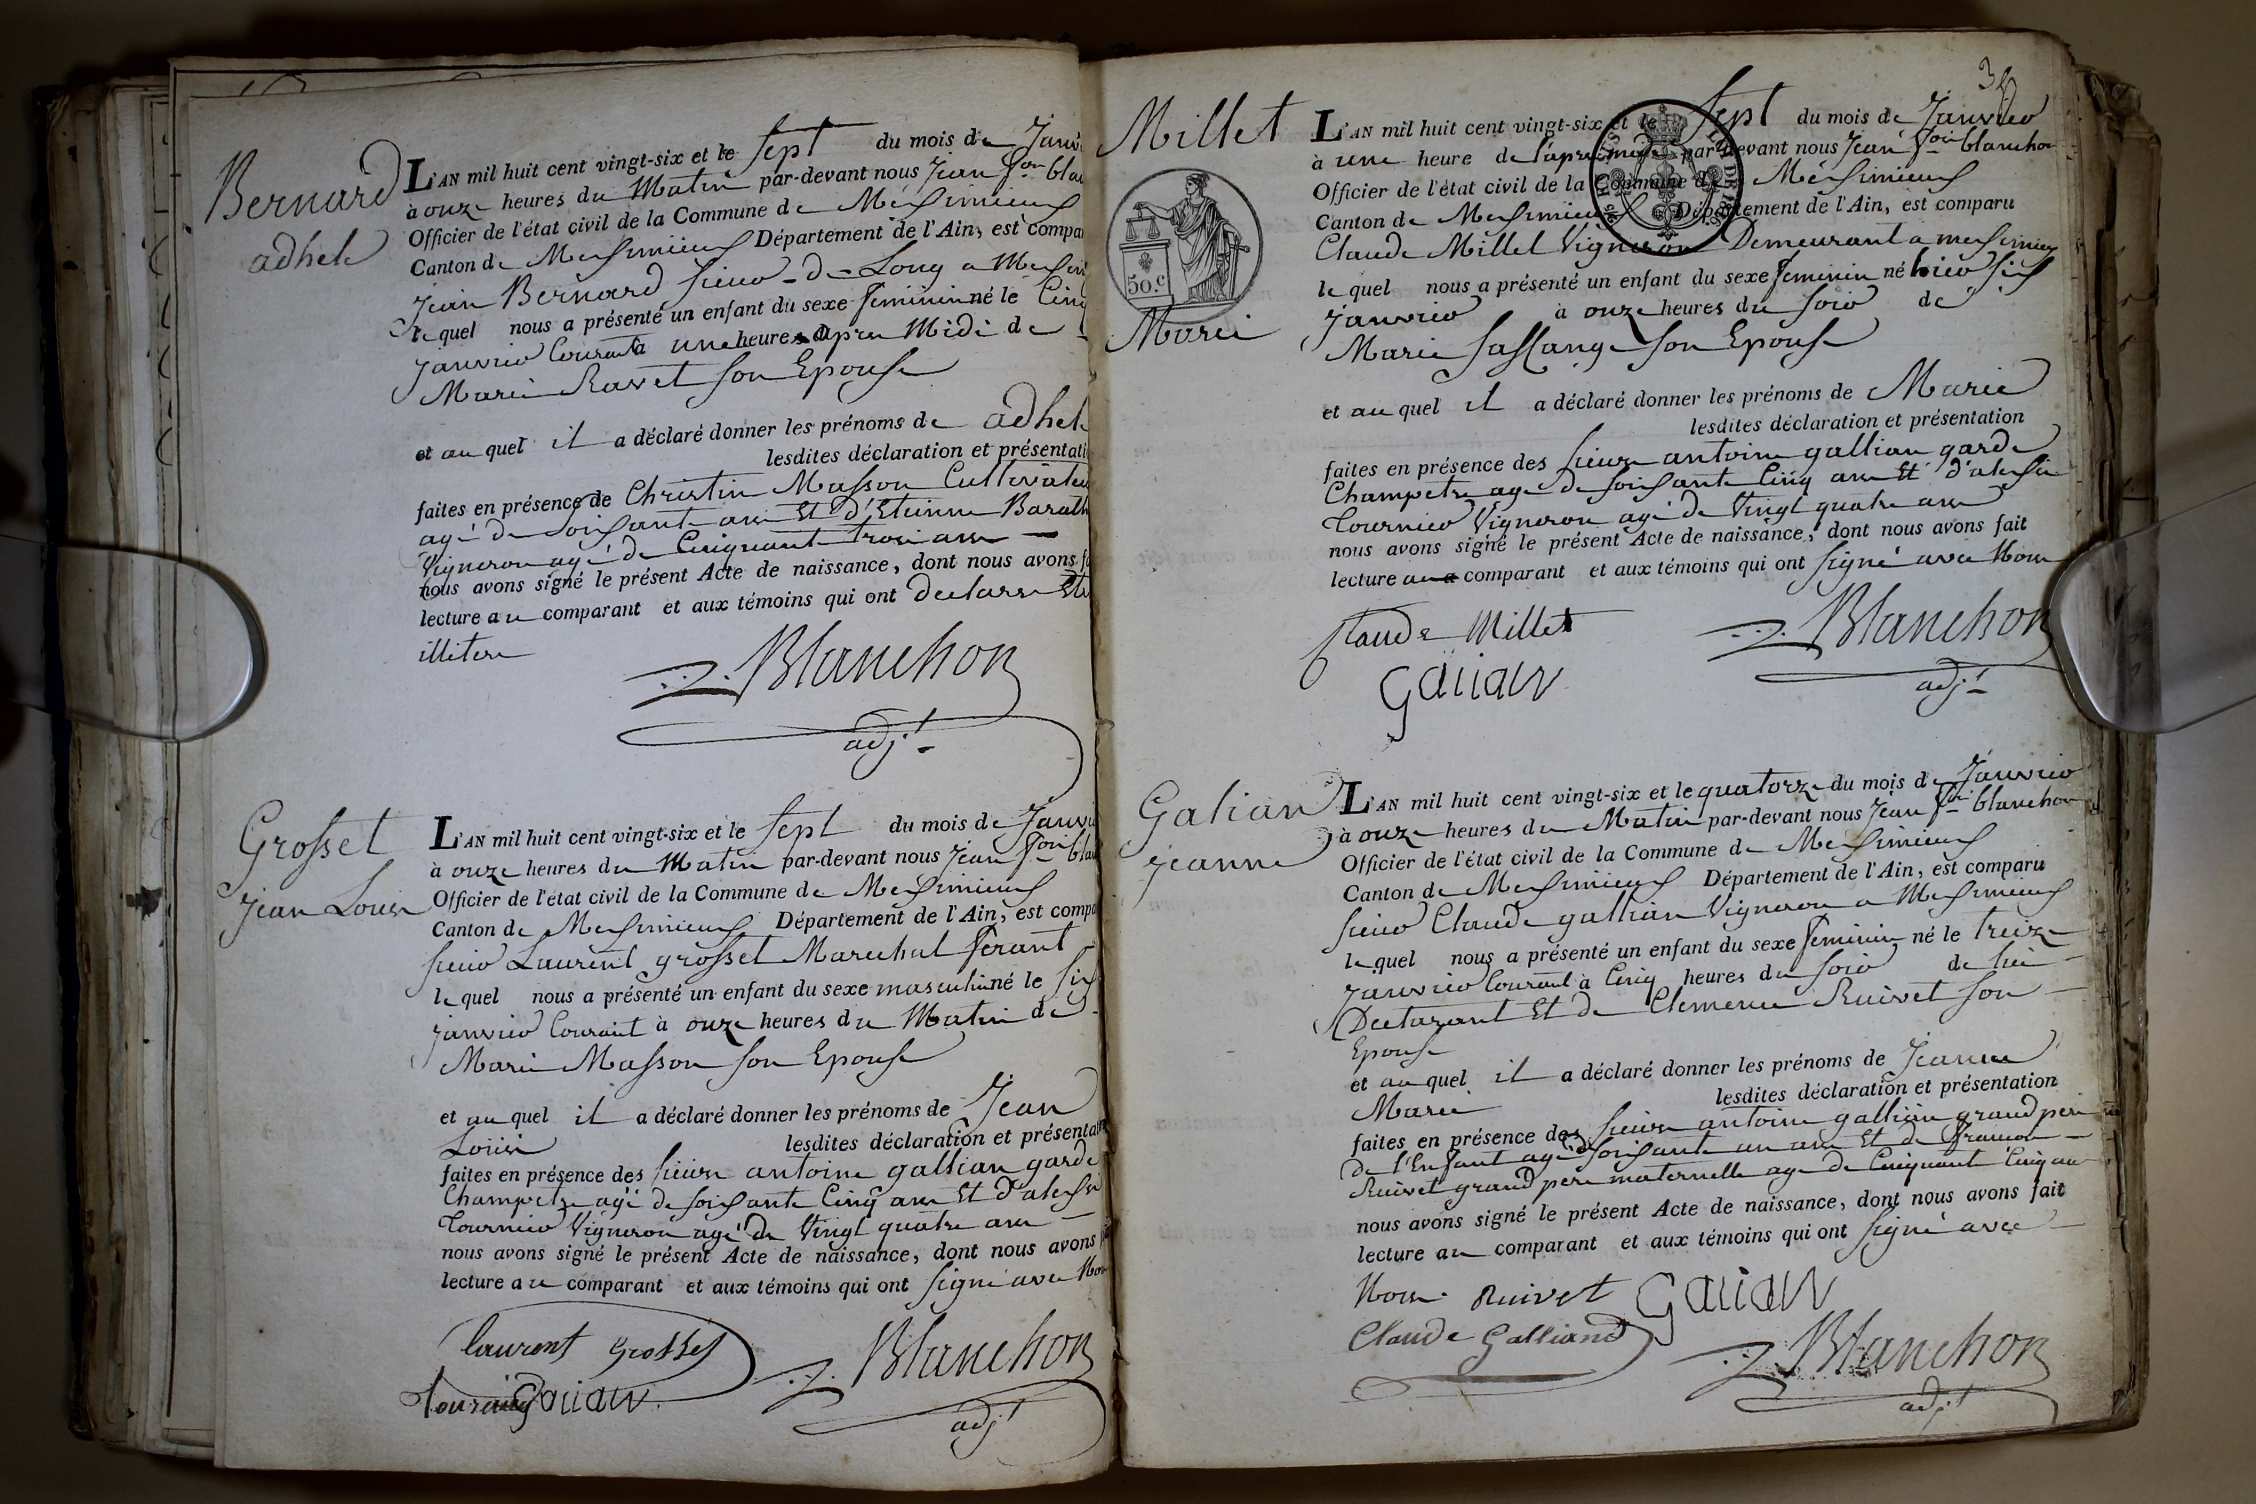 Bernard
adhele
L'AN mil huit cent vingt-six et le Sept du mois de Janv
à onze heures du Matin par-devant nous Jean fois bla
Officier de l'état civil de la Commune de Messimieux
Canton de Messimieux Département de l'Ain, est compa
Jean Bernard sieur de Long a Messim
le quel nous a présenté un enfant du sexe feminin né le Cinq
janvier Courant à une heures apres Midi de
Marie Ravet son Epouse
et au quel il a déclaré donner les prénoms de adhele
lesdites déclaration et présentati
faites en présence de Christin Masson Cultivateur
agé de soissante ans Et d'Etienne Barath
Vigneron agé de Cinquante trois ans
nous avons signé le présent Acte de naissance, dont nous avons f
lecture au comparant et aux témoins qui ont declarer Etre
illiterer
Blanchon
adj.t
Grosset
Jean Louis
L'AN mil huit cent vingt-six et le Sept du mois de Janvi
à onze heures du Matin par-devant nous Jean fois bla
Officier de l'état civil de la Commune de Messimieux
Canton de Messimieux Département de l'Ain, est compa
sieur Laurent grosset Marechal ferant
le quel nous a présenté un enfant du sexe masculin né le six
janvier Courant à onze heures du Matin de
Marie Masson son Epouse
et au quel il a déclaré donner les prénoms de Jean
Louis lesdites déclaration et présentati
faites en présence des sieurs antoine gallian garde
Champetre agé de soissante Cinq ans Et d'alexsi
Tournier Vigneron agé de Vingt quatre ans
nous avons signé le présent Acte de naissance, dont nous avons
lecture au comparant et aux témoins qui ont signé avec Nous
laurent Grosset
Blanchon
Gallian
adj.t
Millet
50.c
Marie
L'AN mil huit cent vingt-six et le Sept du mois de Janvier
à une heure de l'apremidi par-devant nous Jean fois blanchon
Officier de l'état civil de la Commune de Messimieux
Canton de Messimieux Département de l'Ain, est comparu
Claude Millet Vigneron Demeurant a messimieux
le quel nous a présenté un enfant du sexe feminin né hier six
janvier à onze heures du soir de
Marie Sassange son Epouse
et au quel il a déclaré donner les prénoms de Marie
lesdites déclaration et présentation
faites en présence des sieurs antoine gallian garde
Champetre agé de soissante Cinq ans Et d'alexsi
Tournier Vigneron agé de Vingt quatre ans
nous avons signé le présent Acte de naissance, dont nous avons fait
lecture au comparant et aux témoins qui ont signé avec Nous
Claude Millet
Blanchon
Gallian
adj.t
Galian
jeanne
L'AN mil huit cent vingt-six et le quatorze du mois de Janvier
à onze heures du Matin par-devant nous Jean fois blanchon
Officier de l'état civil de la Commune de Messimieux
Canton de Messimieux Département de l'Ain, est comparu
sieur Claude gallian Vigneron a Messimieux
le quel nous a présenté un enfant du sexe feminin né le treize
janvier Courant à Cinq heures du soir de lui
Declarant Et de Clemence Ruivet son
Epouse
et au quel il a déclaré donner les prénoms de Jeanne
Marie lesdites déclaration et présentation
faites en présence des sieurs antoine gallian grand pere
de l'Enfant agé soissante un ans Et de francois
Ruivet grand pere maternelle agé de Cinquante Cinq ans
nous avons signé le présent Acte de naissance, dont nous avons fait
lecture au comparant et aux témoins qui ont signé avec
Nous Ruivet Gallian
Claude Galliand
Blanchon
adj.t